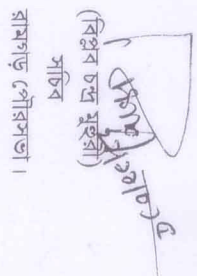 (বিপ্লব চন্দ্র মুহুরী)
সচিব
রামগড় পৌরসভা ।